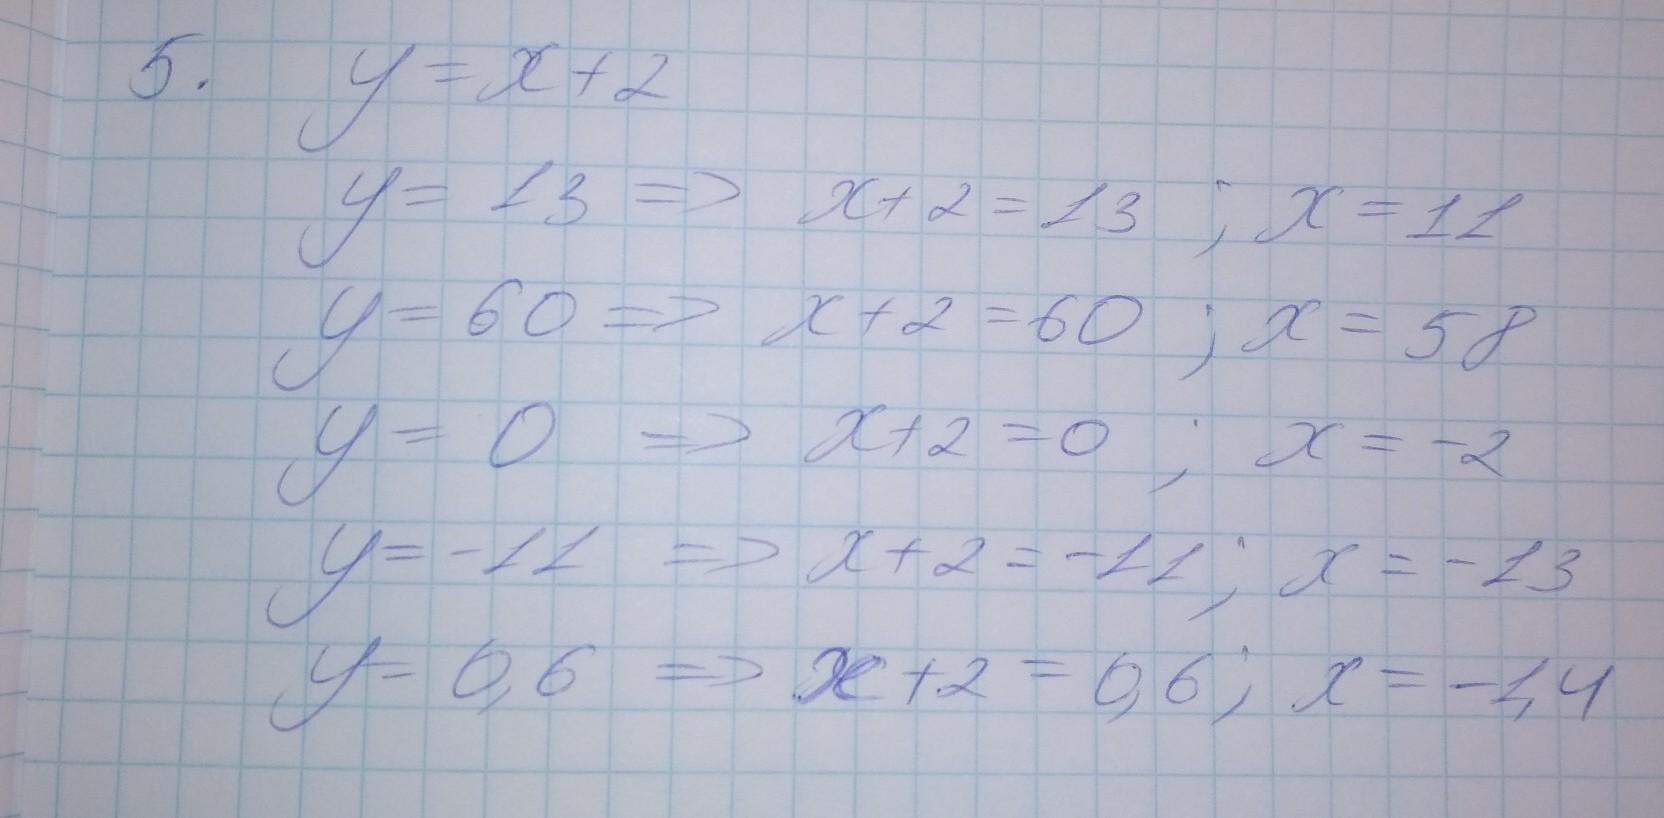 5. y = x + 2
y = 13 => x + 2 = 13 ; x = 11
y = 60 => x + 2 = 60 ; x = 58
y = 0 => x + 2 = 0 ; x = -2
y = -11 => x + 2 = -11 ; x = -13
y = 0,6 => x + 2 = 0,6 ; x = -1,4